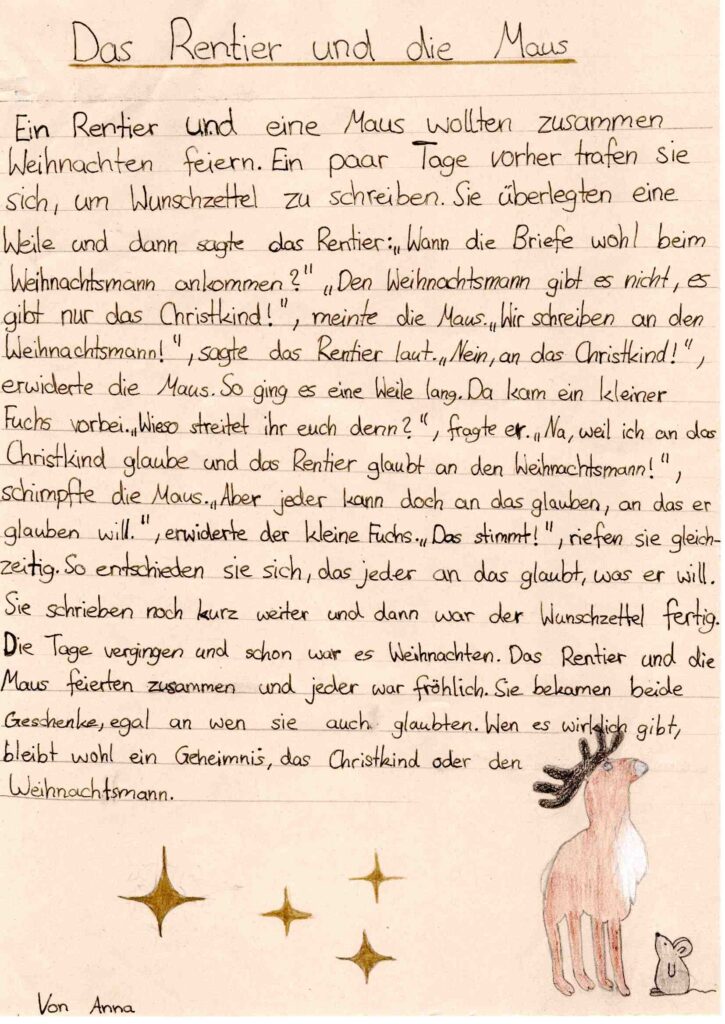 Das Rentier und die Maus
Ein Rentier und eine Maus wollten zusammen
Weihnachten feiern. Ein paar Tage vorher trafen sie
sich, um Wunschzettel zu schreiben. Sie überlegten eine
Weile und dann sagte das Rentier: „Wann die Briefe wohl beim
Weihnachtsmann ankommen?" „Den Weihnachtsmann gibt es nicht, es
gibt nur das Christkind!", meinte die Maus. „Wir schreiben an den
Weihnachtsmann!", sagte das Rentier laut. „Nein, an das Christkind!",
erwiderte die Maus. So ging es eine Weile lang. Da kam ein kleiner
Fuchs vorbei. „Wieso streitet ihr euch denn?", fragte er. „Na, weil ich an das
Christkind glaube und das Rentier glaubt an den Weihnachtsmann!",
schimpfte die Maus. „Aber jeder kann doch an das glauben, an das er
glauben will.", erwiderte der kleine Fuchs. „Das stimmt!", riefen sie gleich-
zeitig. So entschieden sie sich, das jeder an das glaubt, was er will.
Sie schrieben noch kurz weiter und dann war der Wunschzettel fertig.
Die Tage vergingen und schon war es Weihnachten. Das Rentier und die
Maus feierten zusammen und jeder war fröhlich. Sie bekamen beide
Geschenke, egal an wen sie auch glaubten. Wen es wirklich gibt,
bleibt wohl ein Geheimnis, das Christkind oder den
Weihnachtsmann.
Von Anna